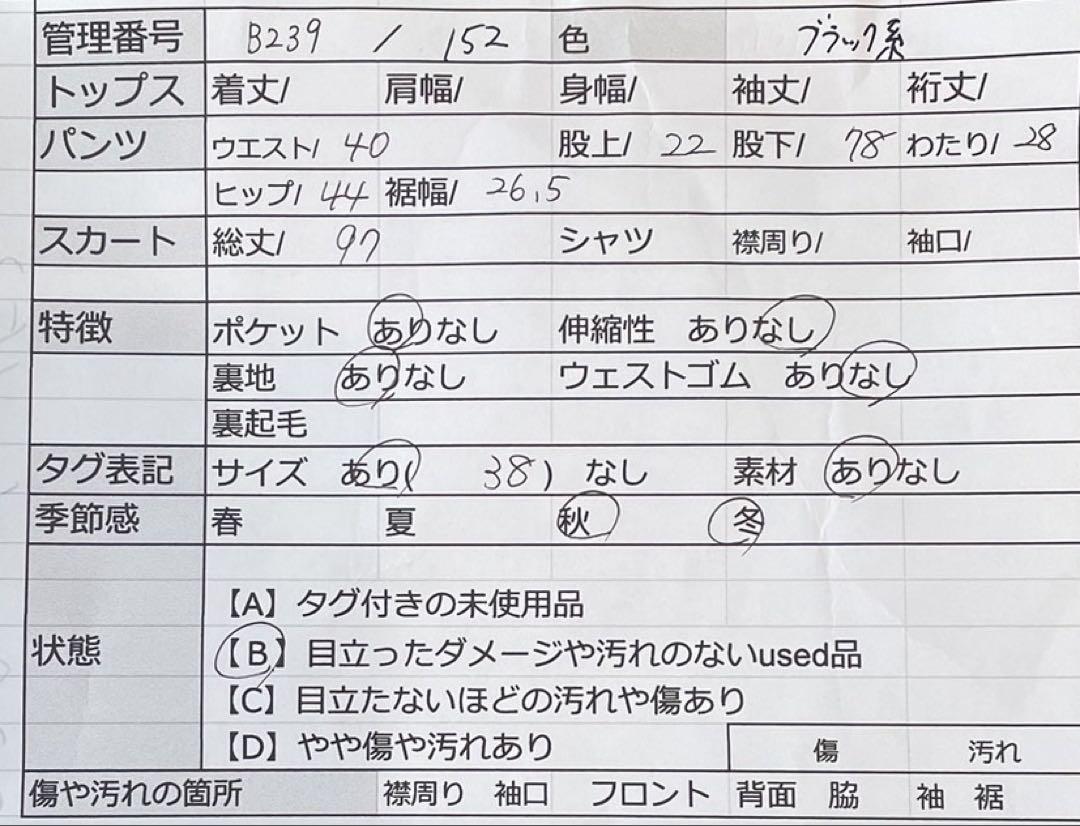 管理番号 B239 / 152 色 ブラック系
トップス 着丈/ 肩幅/ 身幅/ 袖丈/ 裄丈/
パンツ ウエスト/ 40 股上/ 22 股下/ 78 わたり/ 28
ヒップ/ 44 裾幅/ 26.5
スカート 総丈/ 97 シャツ 襟周り/ 袖口/
特徴 ポケット ありなし 伸縮性 ありなし
裏地 ありなし ウェストゴム ありなし
裏起毛
タグ表記 サイズ あり( 38 ) なし 素材 ありなし
季節感 春 夏 秋 冬
【A】タグ付きの未使用品
状態 【B】目立ったダメージや汚れのないused品
【C】目立たないほどの汚れや傷あり
【D】やや傷や汚れあり 傷 汚れ
傷や汚れの箇所 襟周り 袖口 フロント 背面 脇 袖 裾